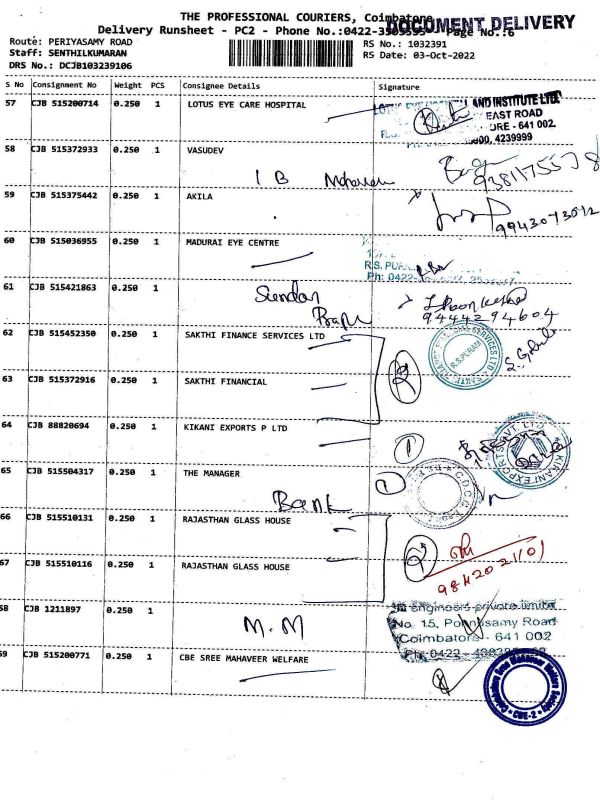 THE PROFESSIONAL COURIERS, Coimbatore
DOCUMENT DELIVERY
Delivery Runsheet - PC2 - Phone No.:0422- Page No.:6
Route: PERIYASAMY ROAD
RS No.: 1032391
Staff: SENTHILKUMARAN
RS Date: 03-Oct-2022
DRS No.: DCJB103239106
S No Consignment No Weight PCS Consignee Details Signature
57 CJB 515200714 0.250 1 LOTUS EYE CARE HOSPITAL
AND INSTITUTE LTD.
EAST ROAD
ORE - 641 002.
4239999
58 CJB 515372933 0.250 1 VASUDEV
I B
59 CJB 515375442 0.250 1 AKILA
60 CJB 515036955 0.250 1 MADURAI EYE CENTRE
R.S. PURA
Ph: 0422-
61 CJB 515421863 0.250 1
Sundar
9444294604
62 CJB 515452350 0.250 1 SAKTHI FINANCE SERVICES LTD
R.S.PURAM
2
63 CJB 515372916 0.250 1 SAKTHI FINANCIAL
64 CJB 88820694 0.250 1 KIKANI EXPORTS P LTD
1
KIKANI EXPORTS PVT. LTD
65 CJB 515504317 0.250 1 THE MANAGER
Bank
1
66 CJB 515510131 0.250 1 RAJASTHAN GLASS HOUSE
2
67 CJB 515510116 0.250 1 RAJASTHAN GLASS HOUSE
9842021101
68 CJB 1211897 0.250 1
M.M
engineers private limited
No. 15, Ponnusamy Road
Coimbatore - 641 002
Ph: 0422 -
69 CJB 515200771 0.250 1 CBE SREE MAHAVEER WELFARE
CBE-2